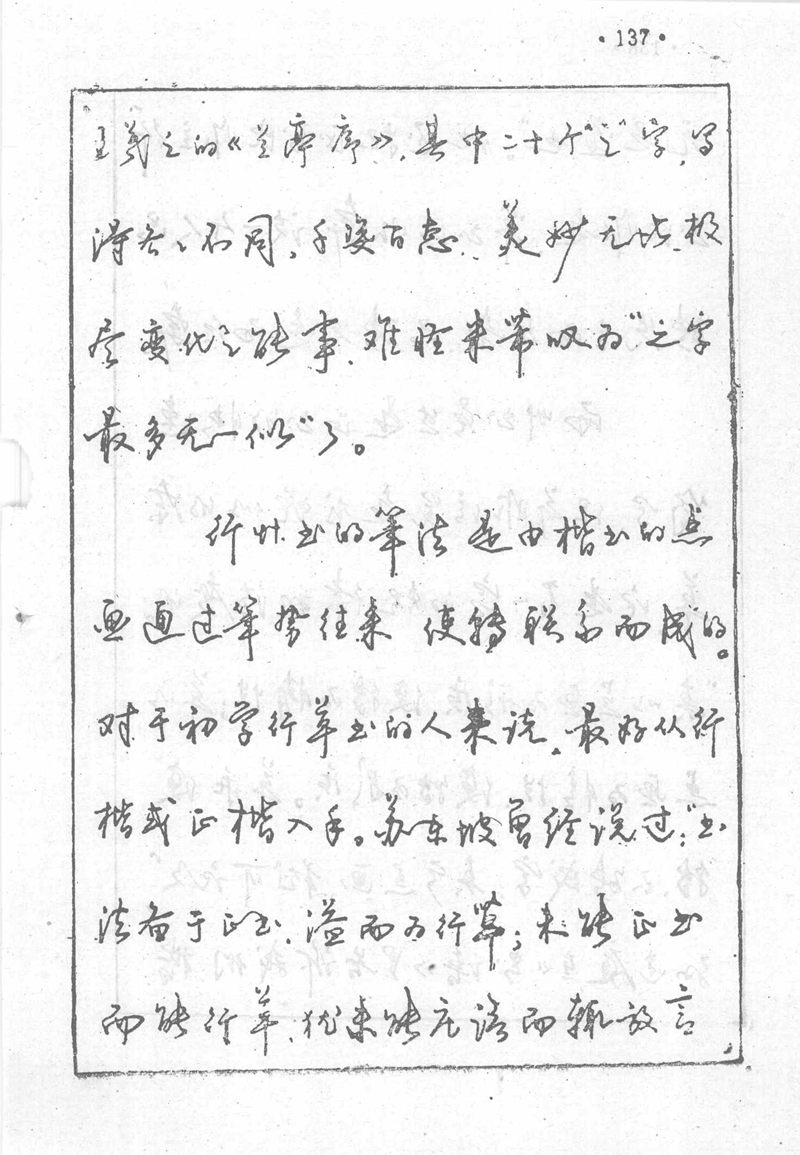 ·137·
王羲之的《兰亭序》，其中二十个“之”字，写
得各、不同，千姿百态，美妙无比，极
尽变化之能事，难怪米芾叹为“之字
最多无一似”了。
行草书的笔法是由楷书的点
画通过笔势往来 使转联系而成的。
对于初学行草书的人来说，最好从行
楷或正楷入手。苏东坡曾经说过：“书
法备于正书，溢而为行草；未能正书
而能行草，犹未能庄语而辄放言